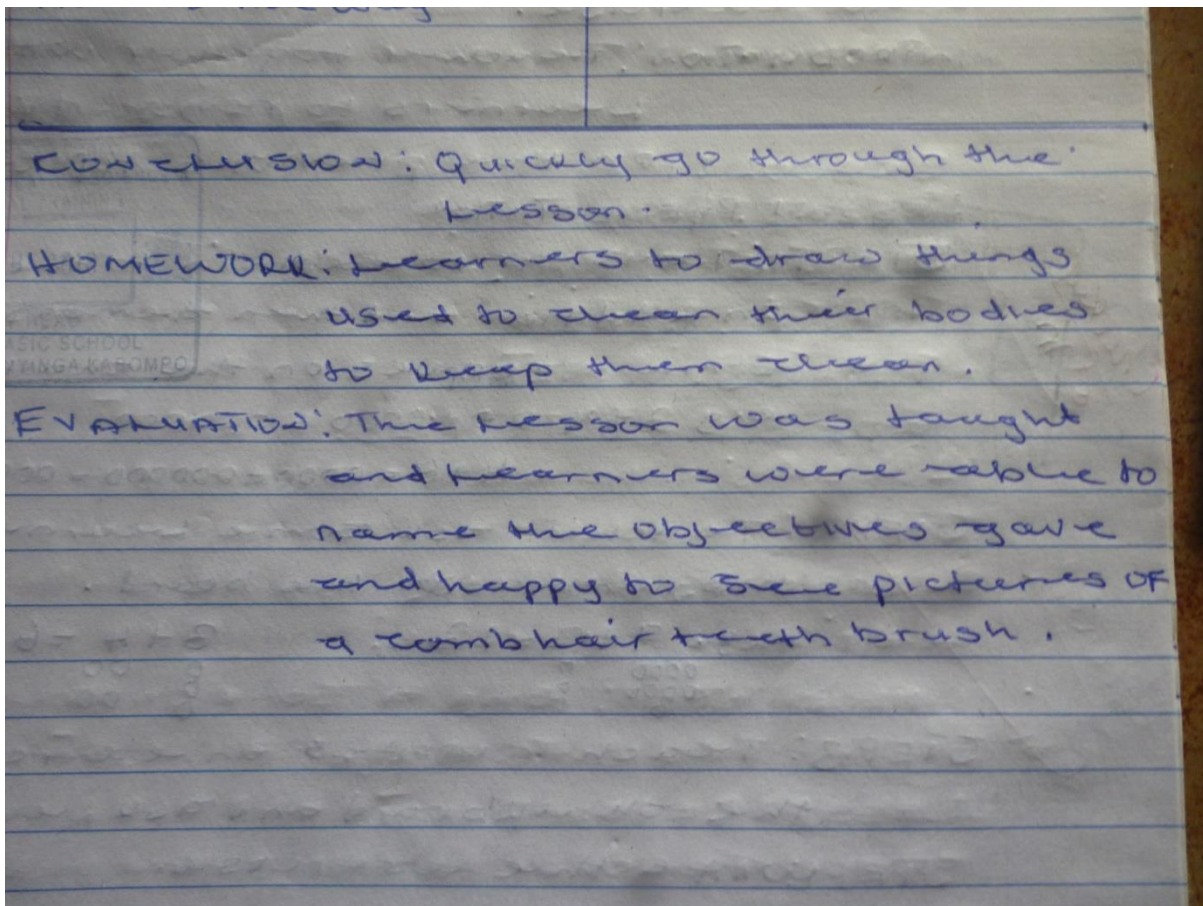 CONCLUSION: Quickly go through the
Lesson.
HOMEWORK: Learners to draw things
used to clean their bodies
to keep them clean.
EVALUATION: The Lesson was taught
and Learners were able to
name the objectives gave
and happy to see pictures of
a comb hair teeth brush.
BASIC SCHOOL
KABOMPO